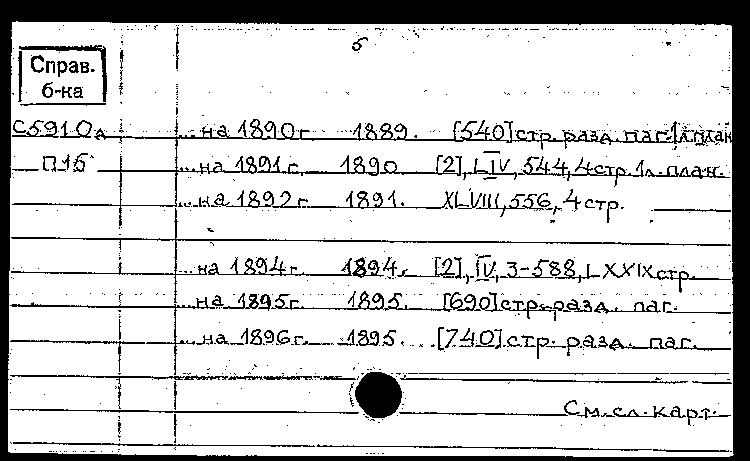 5
Справ.
б-ка
С5910а ...на 1890г 1889. [540]стр. разд. паг. 1л план
П15 ...на 1891г. 1890 [2], LIV, 544, 4стр. 1л. план.
...на 1892г 1891. XLVIII, 556, 4стр.
...на 1894г. 1894. [2], IV, 3-588, LXXIXстр.
...на 1895г. 1895. [690]стр. разд. паг.
...на 1896г. 1895. [740]стр. разд. паг.
См. сл. карт.